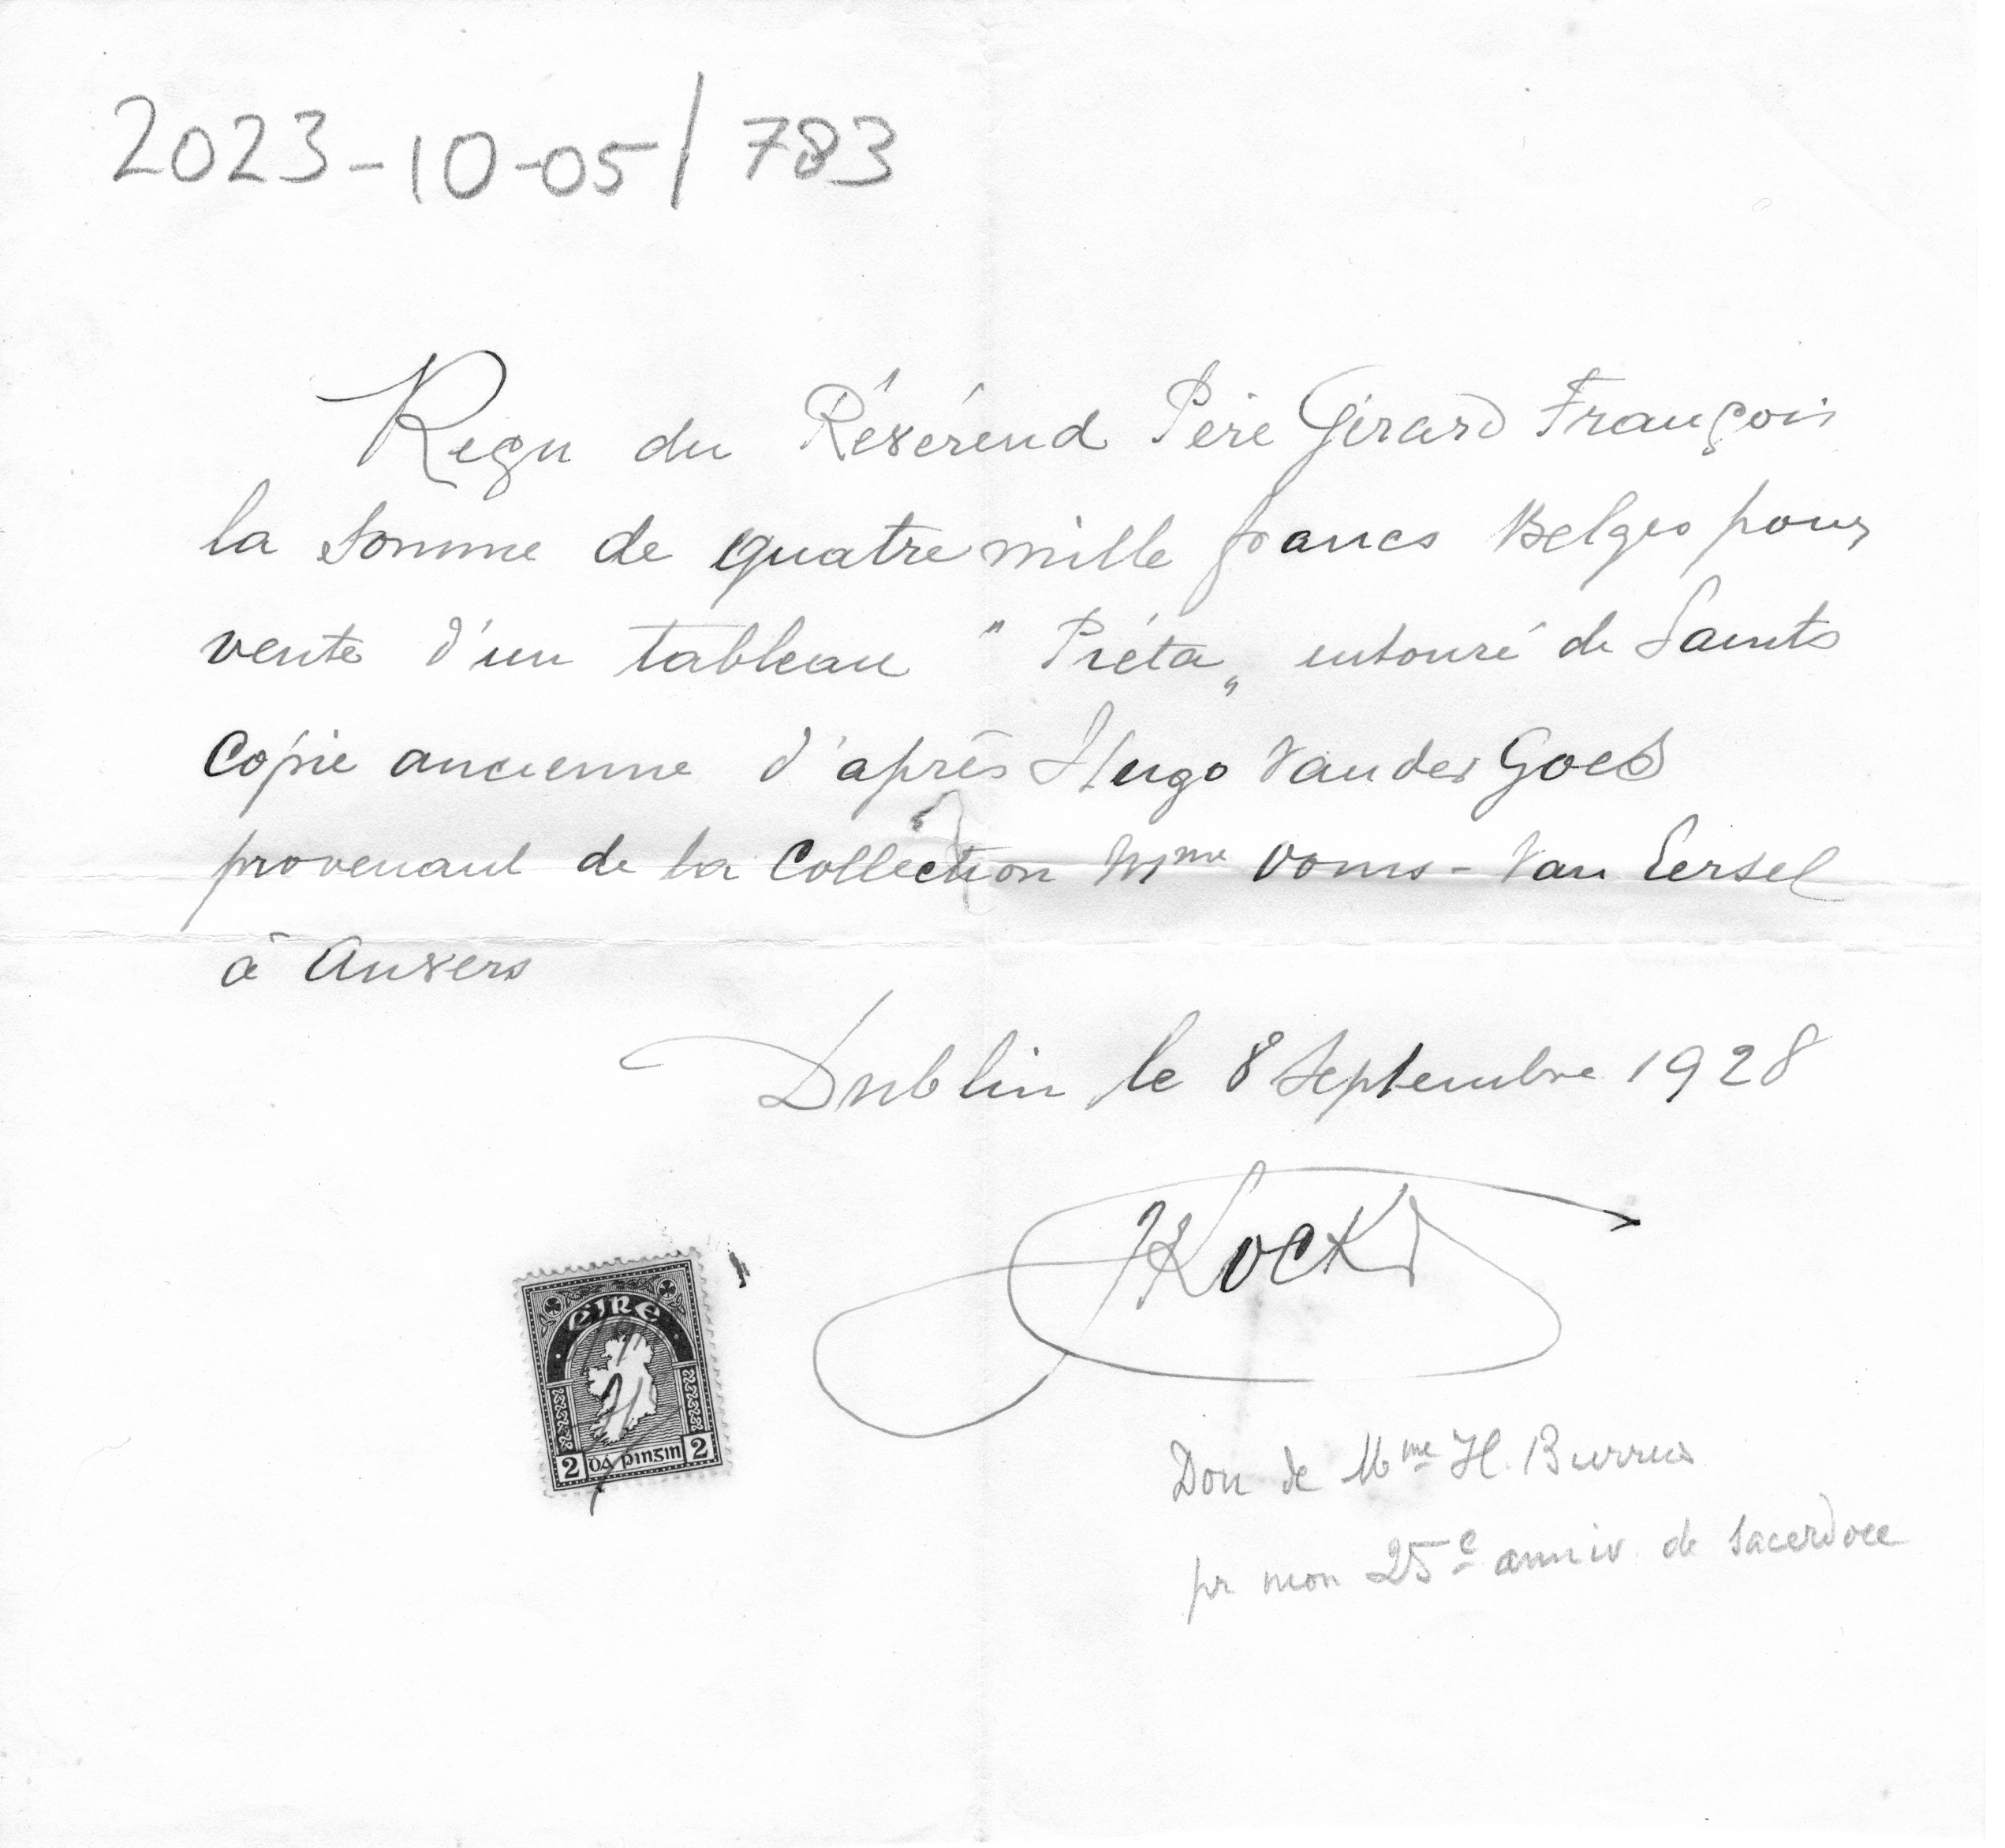 2023-10-05/783
Reçu du Révérend Père Gérard François
la somme de quatre mille francs Belges pour
vente d'un tableau " Piéta „ entouré de Saints
Copie ancienne d'après Hugo Vander Goes
provenant de la Collection Mme Ooms - Van Eersel
à Anvers
Dublin le 8 Septembre 1928
EIRE
2 DA PINGIN 2
Don de Mme H. Burrus
pr mon 25e anniv. de sacerdoce